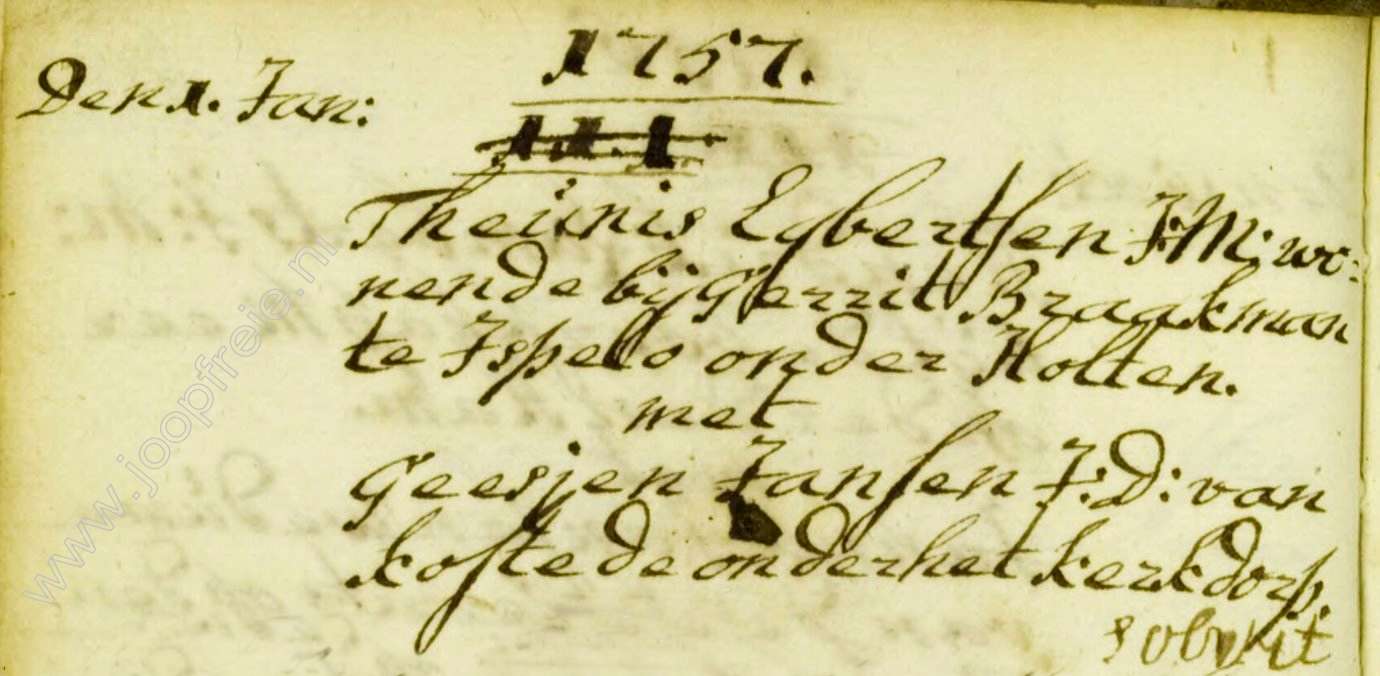 1757.
Den 1. Jan:
Theunis Egbertsen J:M: wo:
nende bij Gerrit Braakman
te Ispelo onder Holten.
met
Geesjen Jansen J:D: van
kostede onder het kerkdorp.
www.joopfreie.nl